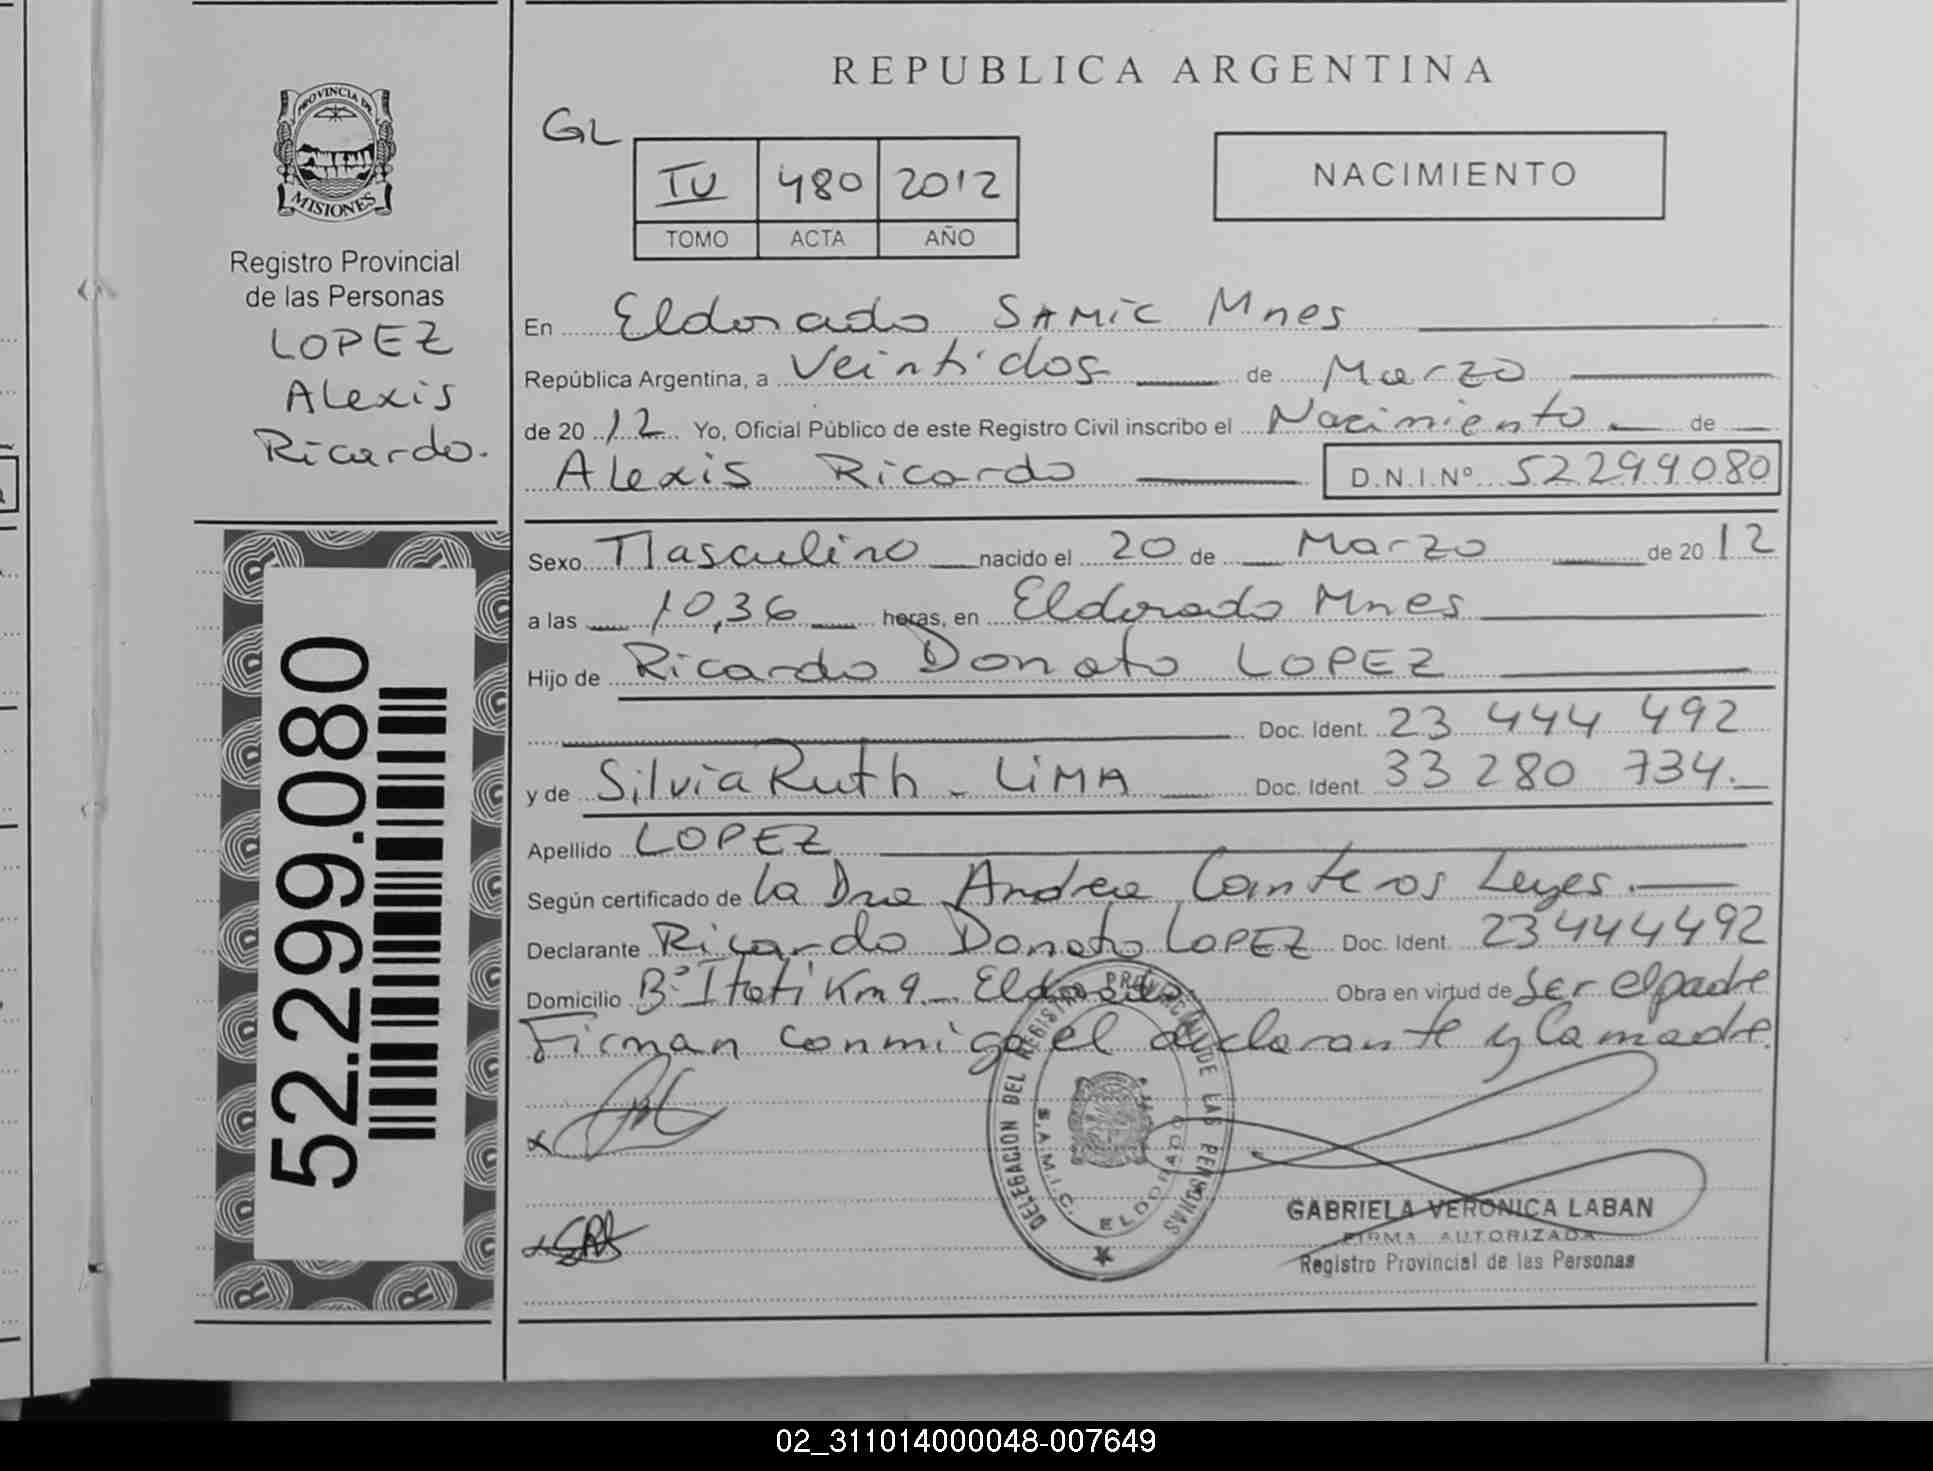 PROVINCIA DE
MISIONES
Registro Provincial
de las Personas
LOPEZ
Alexis
Ricardo.
52.299.080
REPUBLICA ARGENTINA
GL
IV 480 2012
TOMO ACTA AÑO
NACIMIENTO
En Eldorado SAMIC Mnes
República Argentina, a Veintidos de Marzo
de 2012 Yo, Oficial Público de este Registro Civil inscribo el Nacimiento de
Alexis Ricardo D.N.I.Nº 52299080
Sexo Masculino nacido el 20 de Marzo de 2012
a las 10,36 horas, en Eldorado Mnes
Hijo de Ricardo Donato LOPEZ
Doc. Ident. 23 444 492
y de Silvia Ruth - LIMA Doc. Ident. 33 280 734.
Apellido LOPEZ
Según certificado de la Dra Andrea Canteros Leyes.
Declarante Ricardo Donato LOPEZ Doc. Ident. 23444492
Domicilio Bº Itati Km 9 - Eldorado Obra en virtud de ser el padre
Firman conmigo el declarante y la madre.
DELEGACION DEL REGISTRO PROVINCIAL DE LAS PERSONAS
S.A.M.I.C. ELDORADO
GABRIELA VERONICA LABAN
FIRMA AUTORIZADA
Registro Provincial de las Personas
02_311014000048-007649